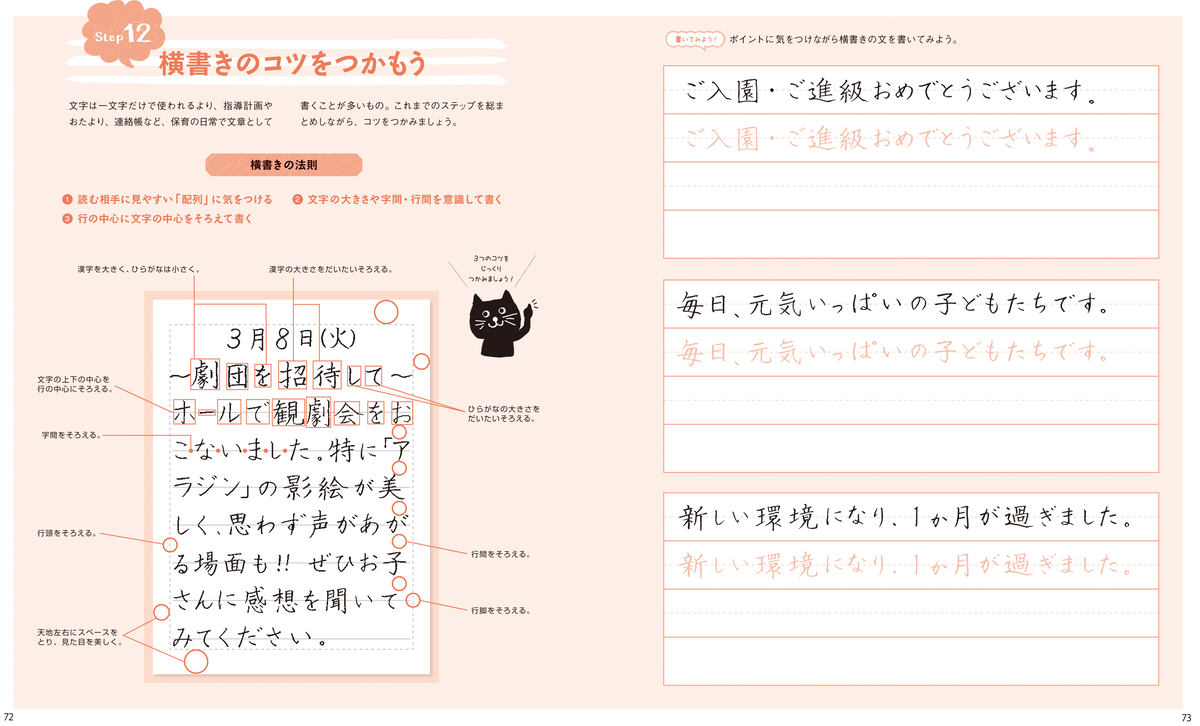 Step 12
横書きのコツをつかもう
文字は一文字だけで使われるより、指導計画や
おたより、連絡帳など、保育の日常で文章として
書くことが多いもの。これまでのステップを総ま
とめしながら、コツをつかみましょう。
横書きの法則
❶ 読む相手に見やすい「配列」に気をつける
❷ 文字の大きさや字間・行間を意識して書く
❸ 行の中心に文字の中心をそろえて書く
漢字を大きく、ひらがなは小さく。
漢字の大きさをだいたいそろえる。
3つのコツを
じっくり
つかみましょう!
文字の上下の中心を
行の中心にそろえる。
字間をそろえる。
行頭をそろえる。
天地左右にスペースを
とり、見た目を美しく。
3月8日(火)
〜劇団を招待して〜
ホールで観劇会をお
こないました。特に「ア
ラジン」の影絵が美
しく、思わず声があが
る場面も!! ぜひお子
さんに感想を聞いて
みてください。
ひらがなの大きさを
だいたいそろえる。
行間をそろえる。
行脚をそろえる。
72
書いてみよう!
ポイントに気をつけながら横書きの文を書いてみよう。
ご入園・ご進級おめでとうございます。
ご入園・ご進級おめでとうございます。
毎日、元気いっぱいの子どもたちです。
毎日、元気いっぱいの子どもたちです。
新しい環境になり、1か月が過ぎました。
新しい環境になり、1か月が過ぎました。
73